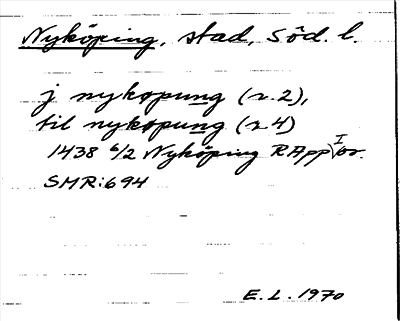 Nyköping, stad, Söd. l.
j nykopung (r. 2),
til nykopung (r. 4)
1438 6/2 Nyköping RApp I or.
SMR:694
E. L. 1970